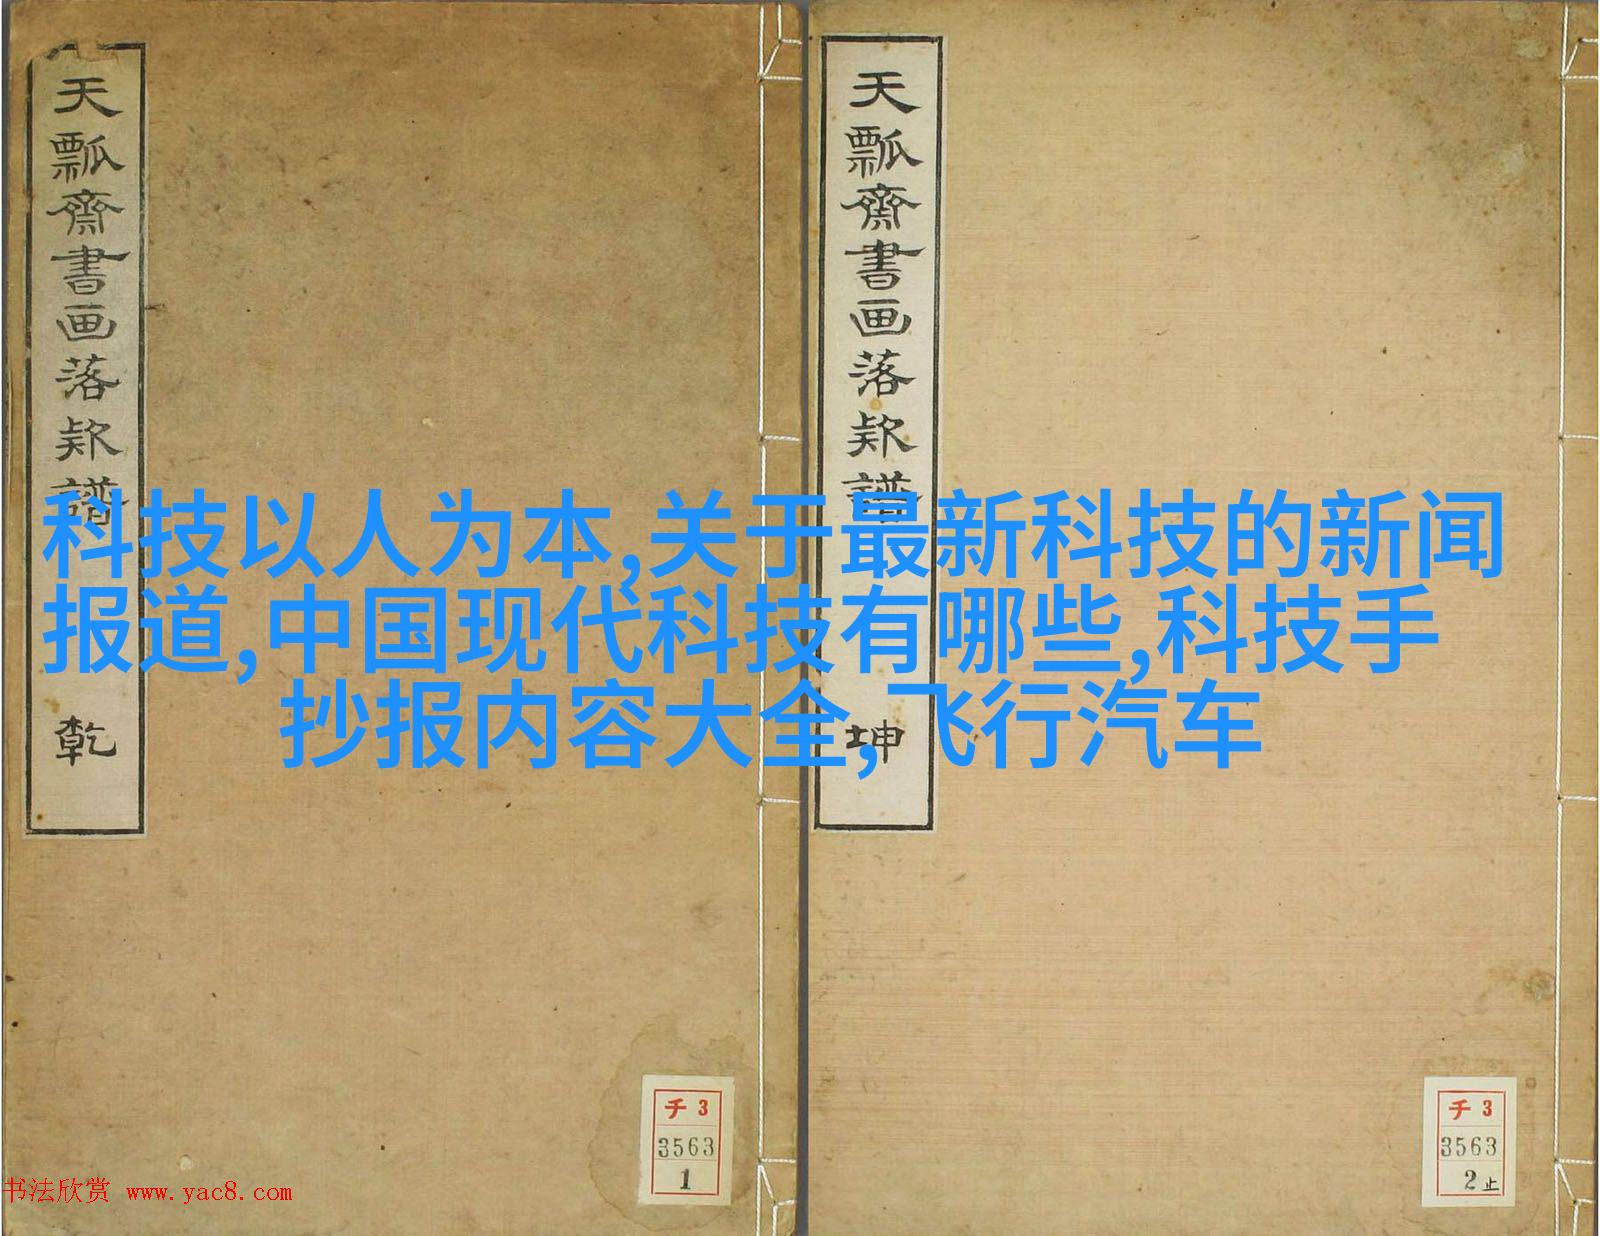 天瓢齋書画落款譜
乾
天瓢齋書画落款譜
坤
科技以人为本,关于最新科技的新闻
报道,中国现代科技有哪些,科技手
抄报内容大全,飞行汽车
チ 3
3563
1
チ 3
3563
2止
书法欣赏 www.yac8.com